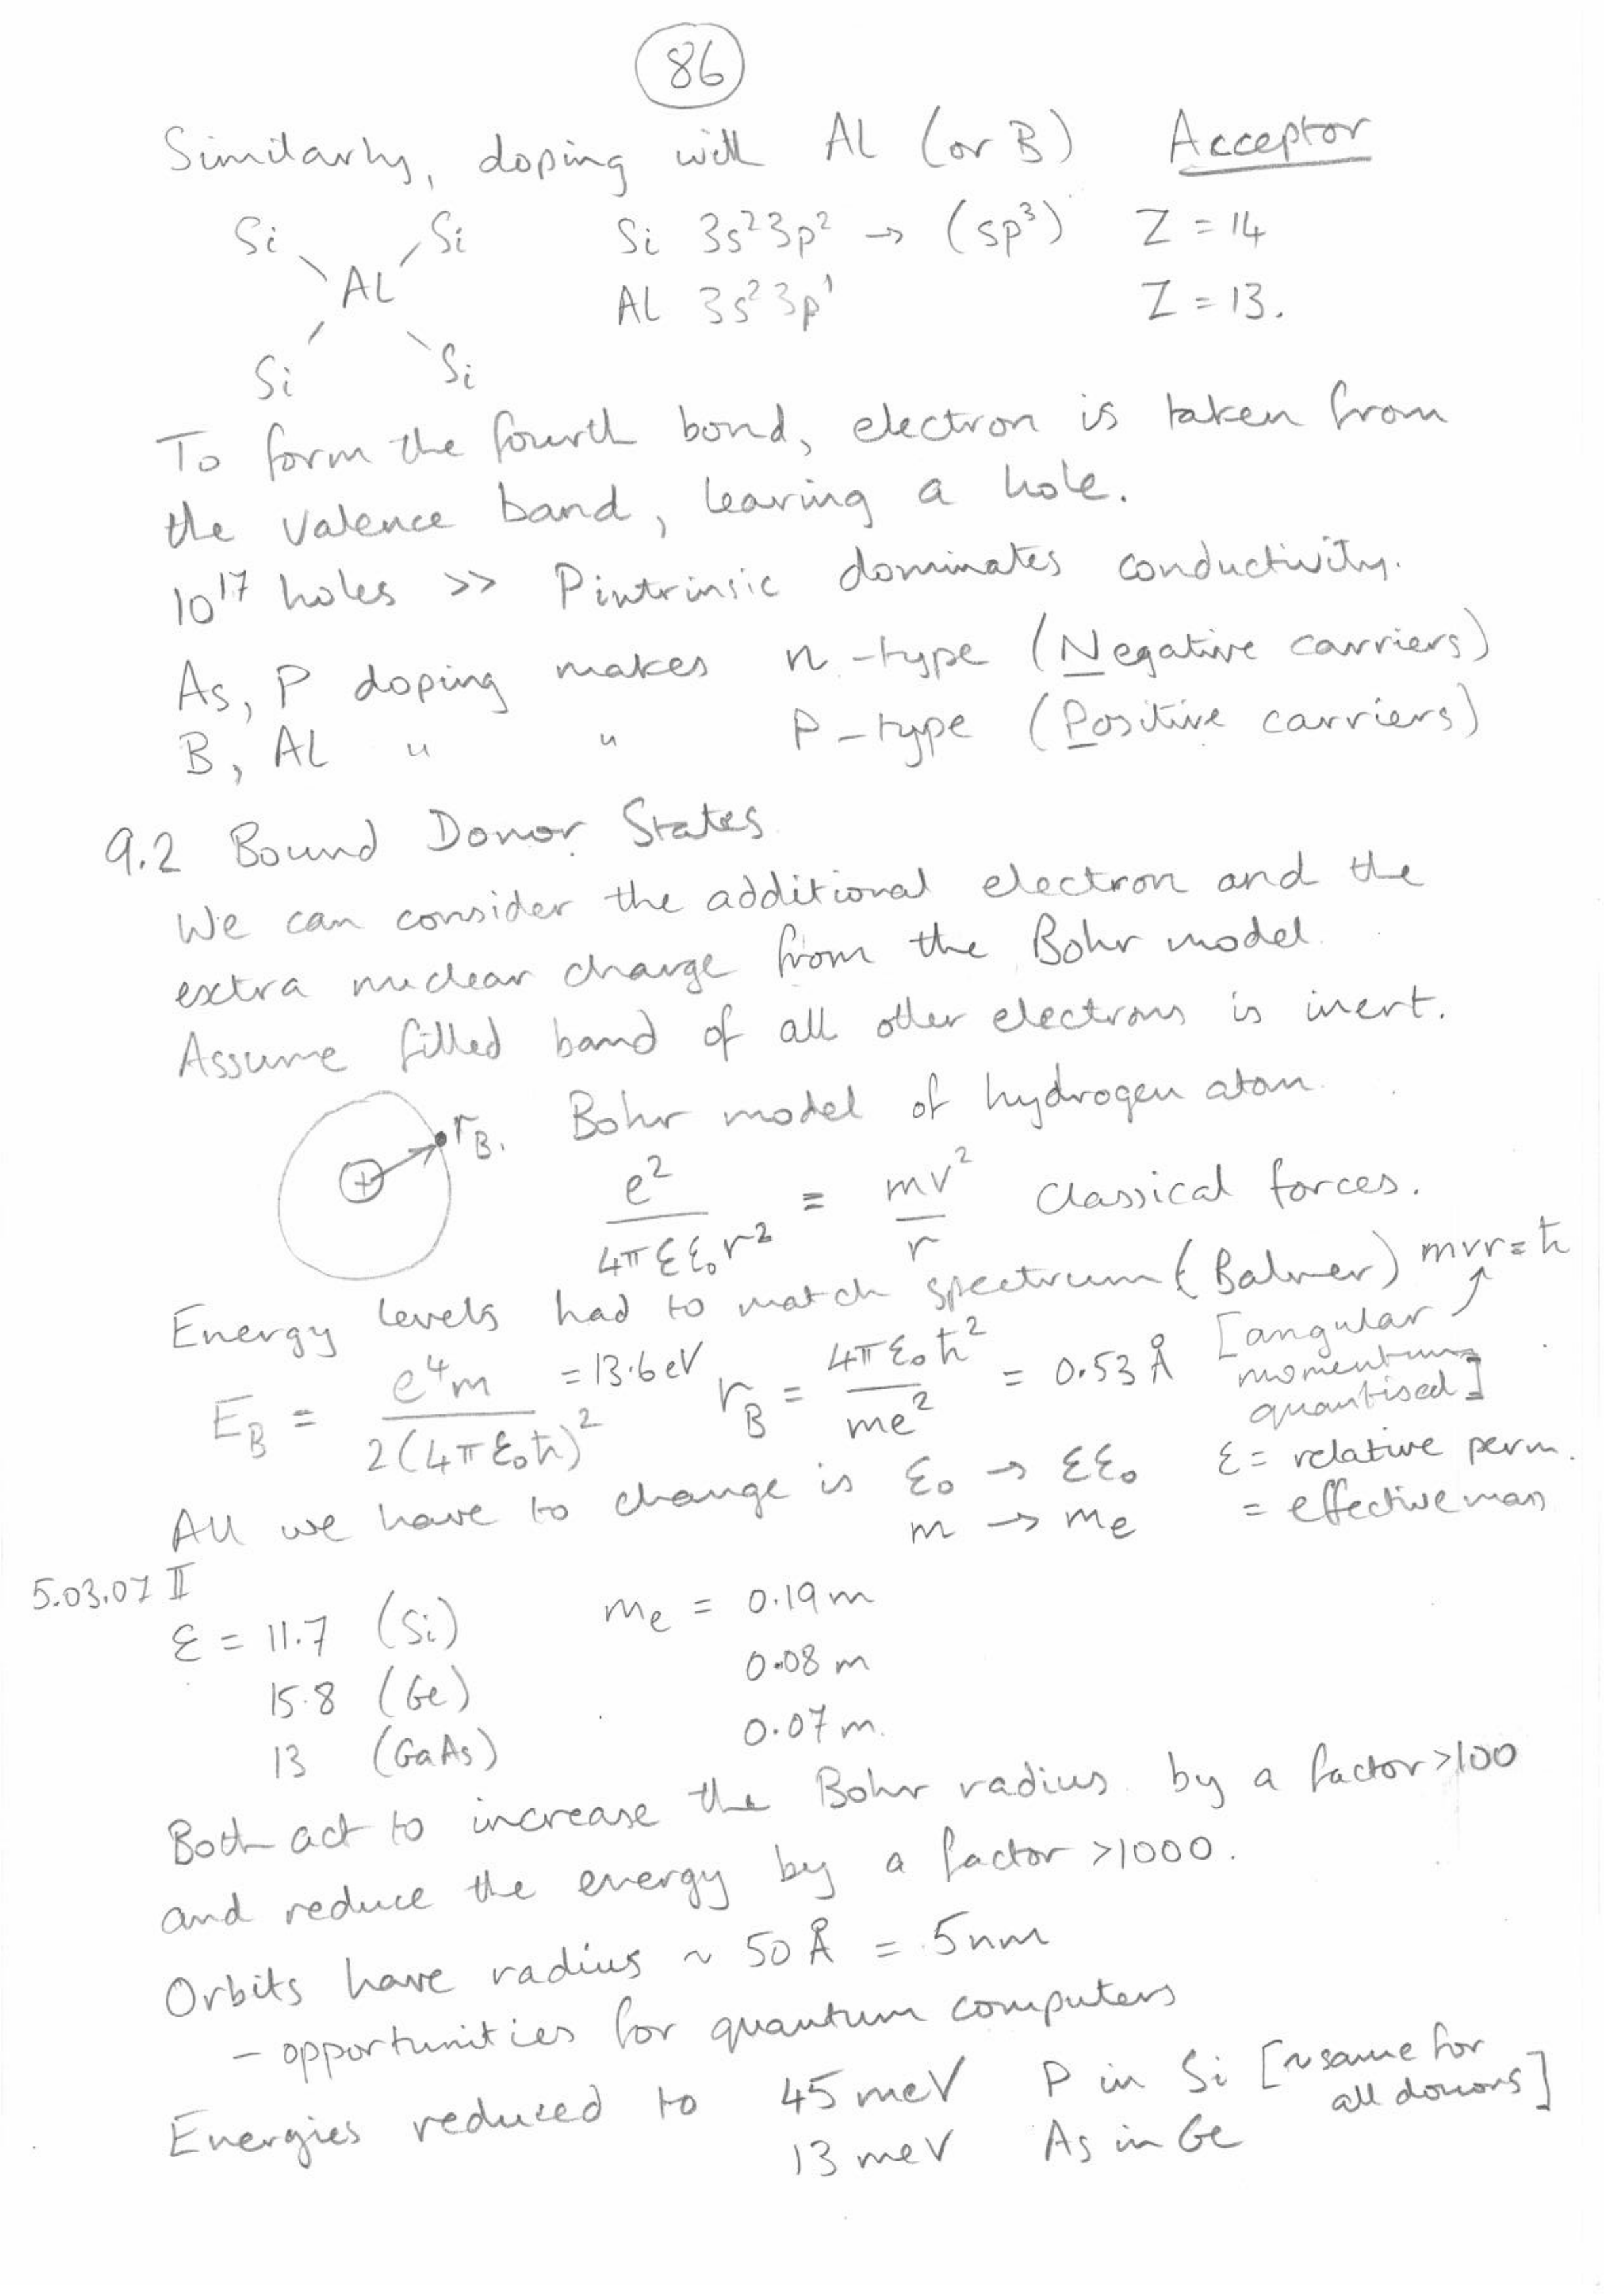 86
Similarly, doping with Al (or B) Acceptor
Si Si Si 3s²3p² → (sp³) Z = 14
Al Al 3s²3p¹ Z = 13.
Si Si
To form the fourth bond, electron is taken from
the valence band, leaving a hole.
10¹⁷ holes >> Pintrinsic dominates conductivity.
As, P doping makes n-type (Negative carriers)
B, Al " " P-type (Positive carriers)
9.2 Bound Donor States
We can consider the additional electron and the
extra nuclear charge from the Bohr model.
Assume filled band of all other electrons is inert.
+ r_B. Bohr model of hydrogen atom
e²/(4πεε₀r²) = mv²/r Classical forces.
Energy levels had to match spectrum (Balmer) mvr = ħ
E_B = e⁴m/(2(4πε₀ħ)²) = 13.6 eV r_B = 4πε₀ħ²/(me²) = 0.53 Å [angular
momentum
quantised]
All we have to change is ε₀ → εε₀ ε = relative perm.
m → mₑ = effective mass
5.03.07 II
ε = 11.7 (Si) mₑ = 0.19m
15.8 (Ge) 0.08m
13 (GaAs) 0.07m.
Both act to increase the Bohr radius by a factor >100
and reduce the energy by a factor >1000.
Orbits have radius ~ 50 Å = 5nm
- opportunities for quantum computers
Energies reduced to 45 meV P in Si [~same for
all donors]
13 meV As in Ge